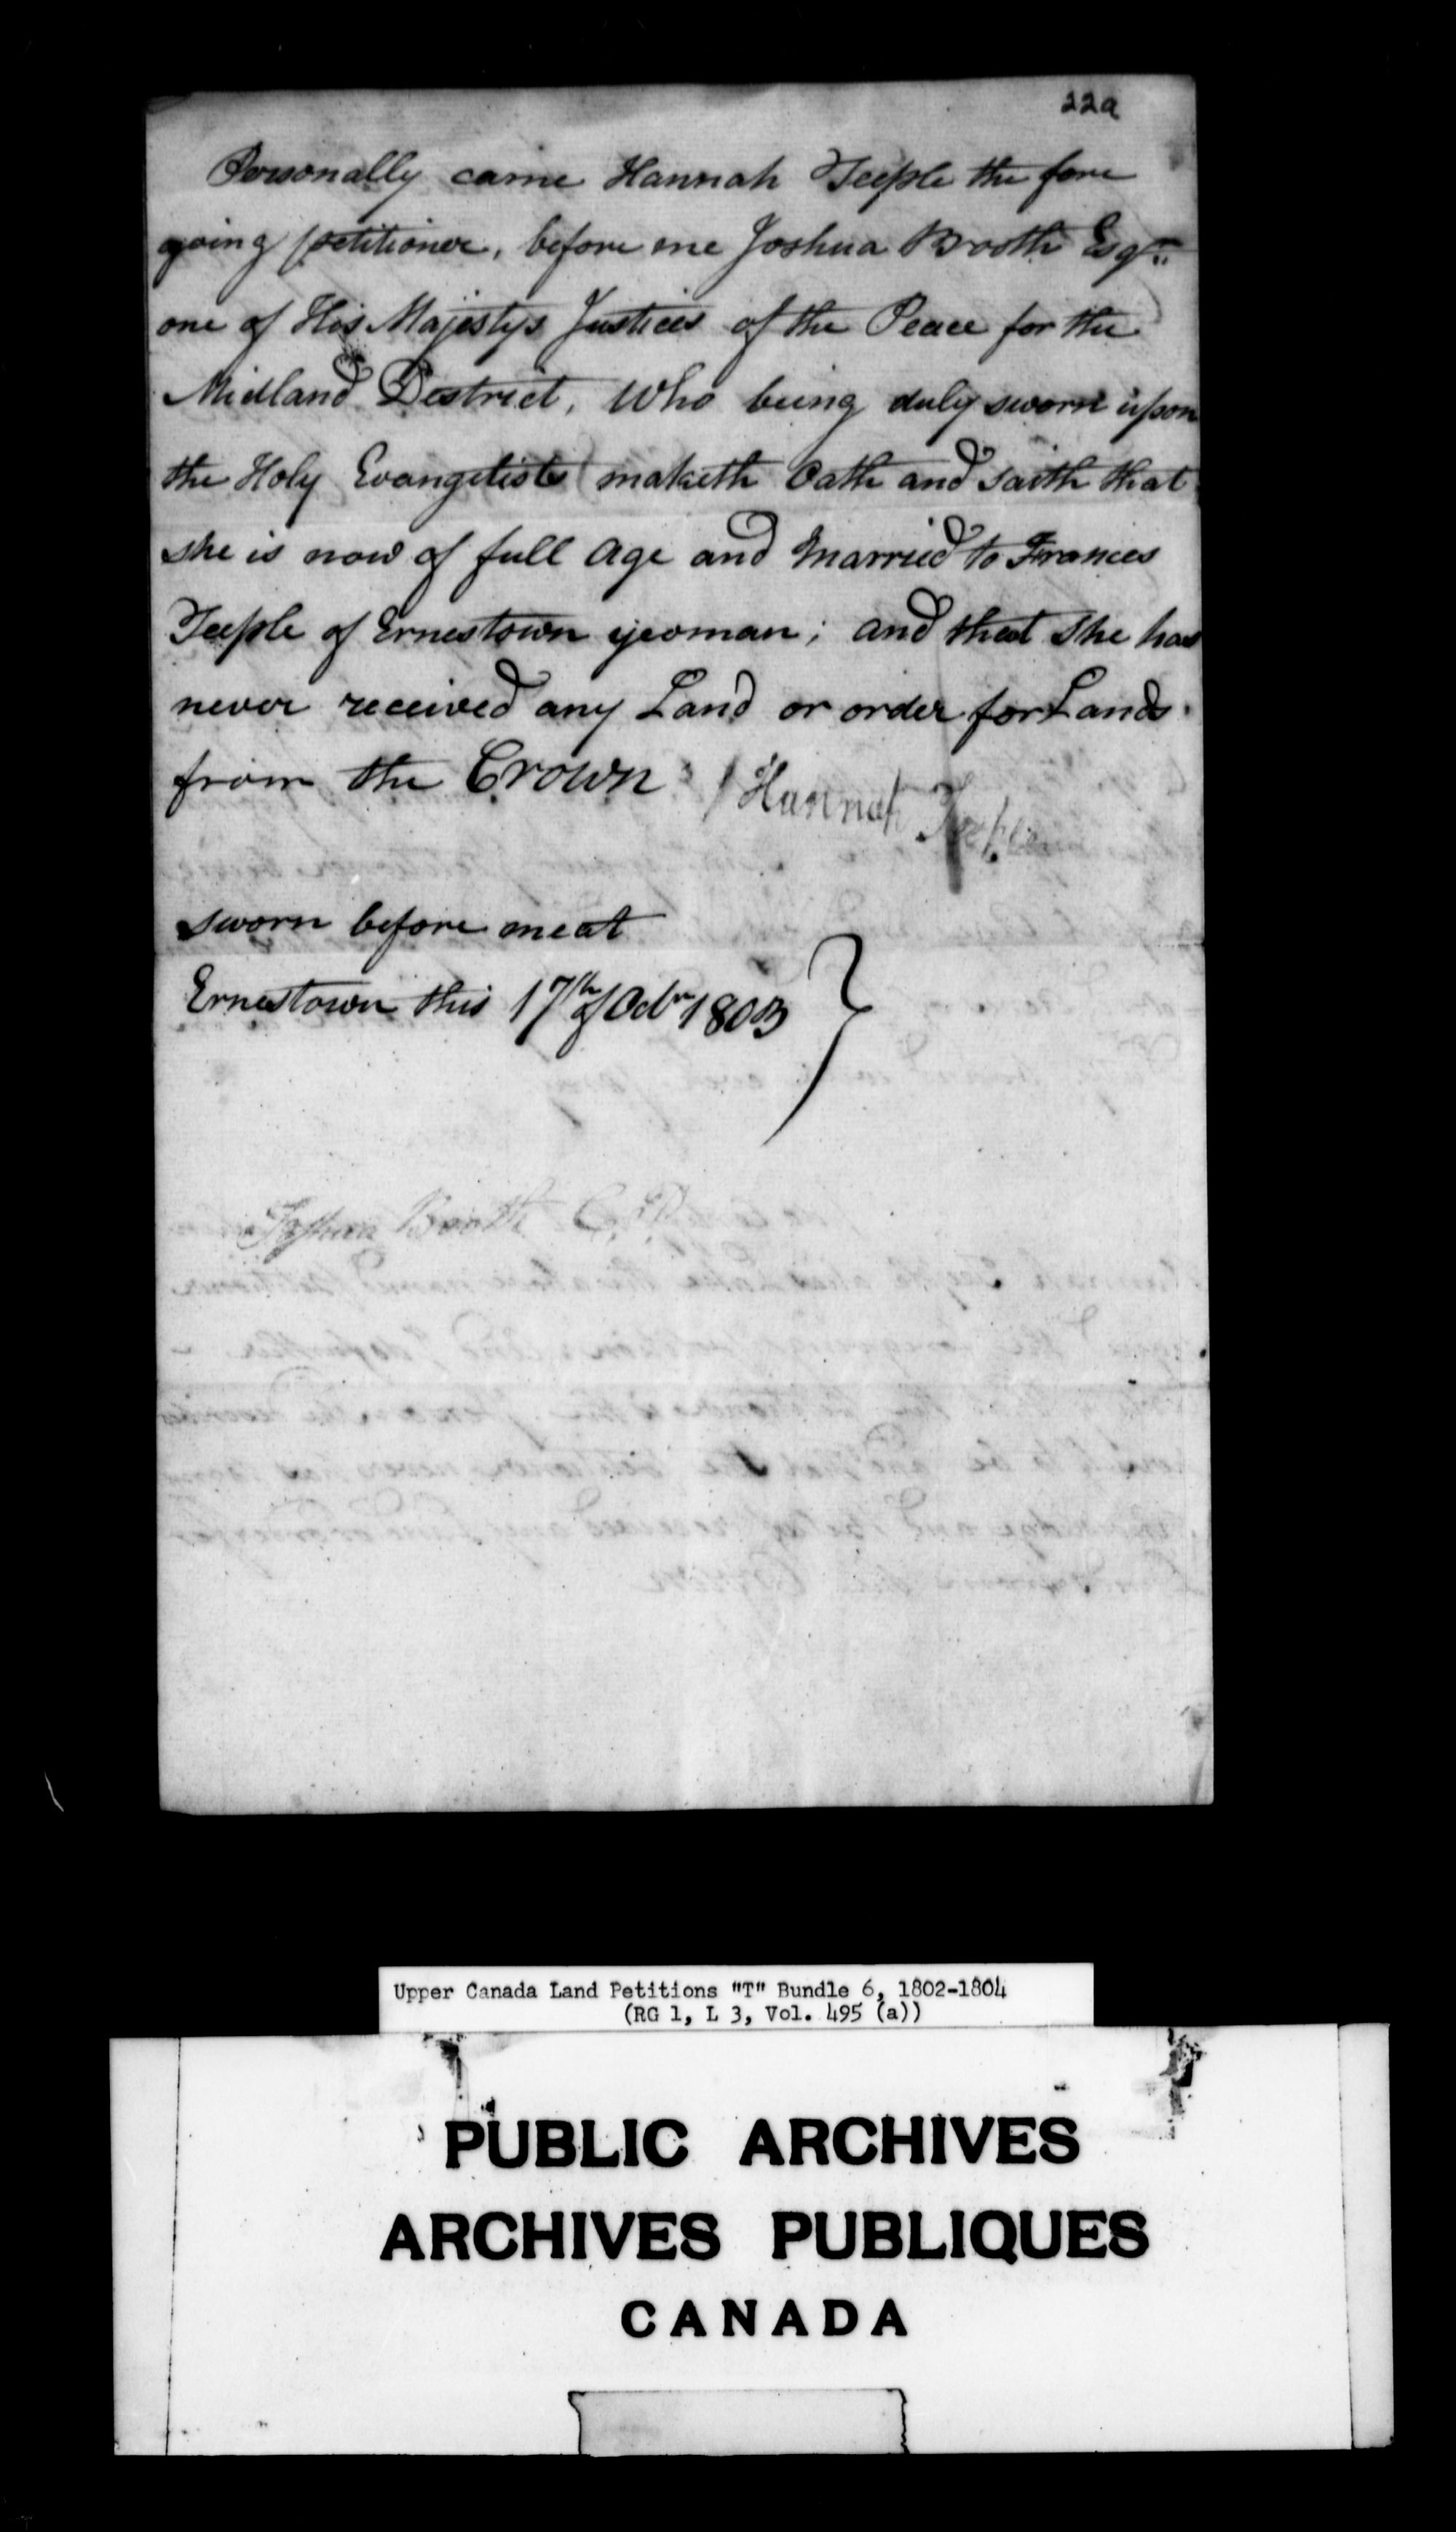 22a
Personally came Hannah Teeple the fore
going petitioner, before me Joshua Booth Esqr.
one of His Majestys Justices of the Peace for the
Midland District, Who being duly sworn upon
the Holy Evangelists maketh Oath and saith that
she is now of full Age and Married to Frances
Teeple of Ernestown yeoman; and that She has
never received any Land or order for Lands
from the Crown Hannah Teeple
sworn before me at
Ernestown this 17th of Octr 1803
Joshua Booth
Upper Canada Land Petitions "T" Bundle 6, 1802-1804
(RG 1, L 3, Vol. 495 (a))
PUBLIC ARCHIVES
ARCHIVES PUBLIQUES
CANADA